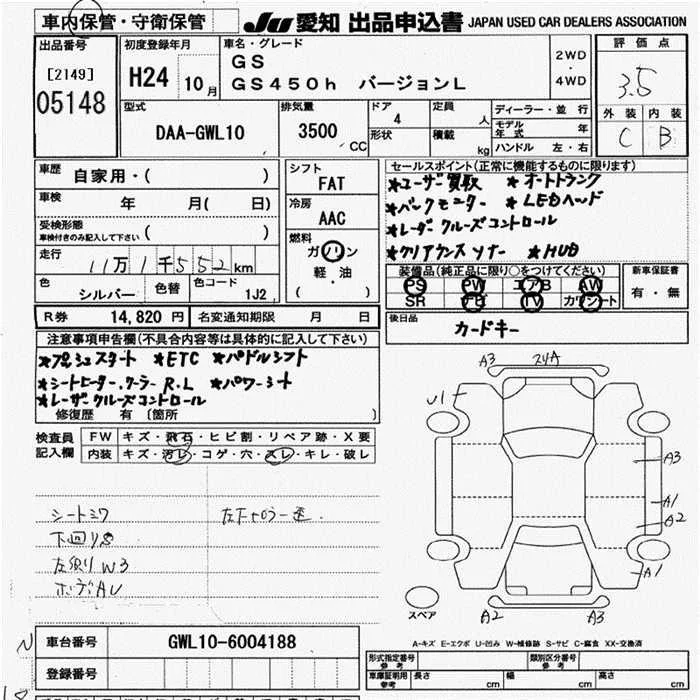 車内保管・守衛保管
JU 愛知 出品申込書 JAPAN USED CAR DEALERS ASSOCIATION
出品番号 [2149] 05148
初度登録年月 H24 10月
車名・グレード GS
GS450h バージョンL
2WD・4WD
評価点 3.5
外装 C 内装 B
型式 DAA-GWL10
排気量 3500 CC
ドア 4 形状
定員 人 積載 kg
ディーラー・並行
モデル年式 年
ハンドル 左・右
車歴 自家用・( )
車検 年 月( 日)
受検形態 車検付きのみ記入して下さい ( )
走行 11万1千552km
色 シルバー 色替 色コード 1J2
シフト FAT
冷房 AAC
燃料 ガソリン 軽・油 ( )
セールスポイント(正常に機能するものに限ります)
★ユーザー買取 ★オートトランク
★バックモニター ★LEDヘッド
★レーダークルーズコントロール
★クリアランスソナー ★HUD
装備品(純正品に限り○をつけてください)
PS PW エアB AW
SR ナビ TV カワシート
新車保証書 有・無
R券 14,820円 名変通知期限 月 日
後日品 カードキー
注意事項申告欄(不具合内容等は具体的に記入して下さい)
★プッシュスタート ★ETC ★パドルシフト
★シートヒーター.クーラーR.L ★パワーシート
★レーザークルーズコントロール
修復歴 有 〔箇所 〕
検査員記入欄
FW キズ・飛石・ヒビ割・リペア跡・X要
内装 キズ・汚レ・コゲ・穴・スレ・キレ・破レ
シートシワ
下回りS
左Fリ W3
ボデーAU
A3 スリA
U1
A3
A1
A2
A1
スペア A2 A3
車台番号 GWL10-6004188
登録番号
A-キズ E-エクボ U-凹み W-補修跡 S-サビ C-腐食 XX-交換済
形式指定番号 参考 類別区分番号 参考
車庫証明用 参考 長さ cm 幅 cm 高さ cm